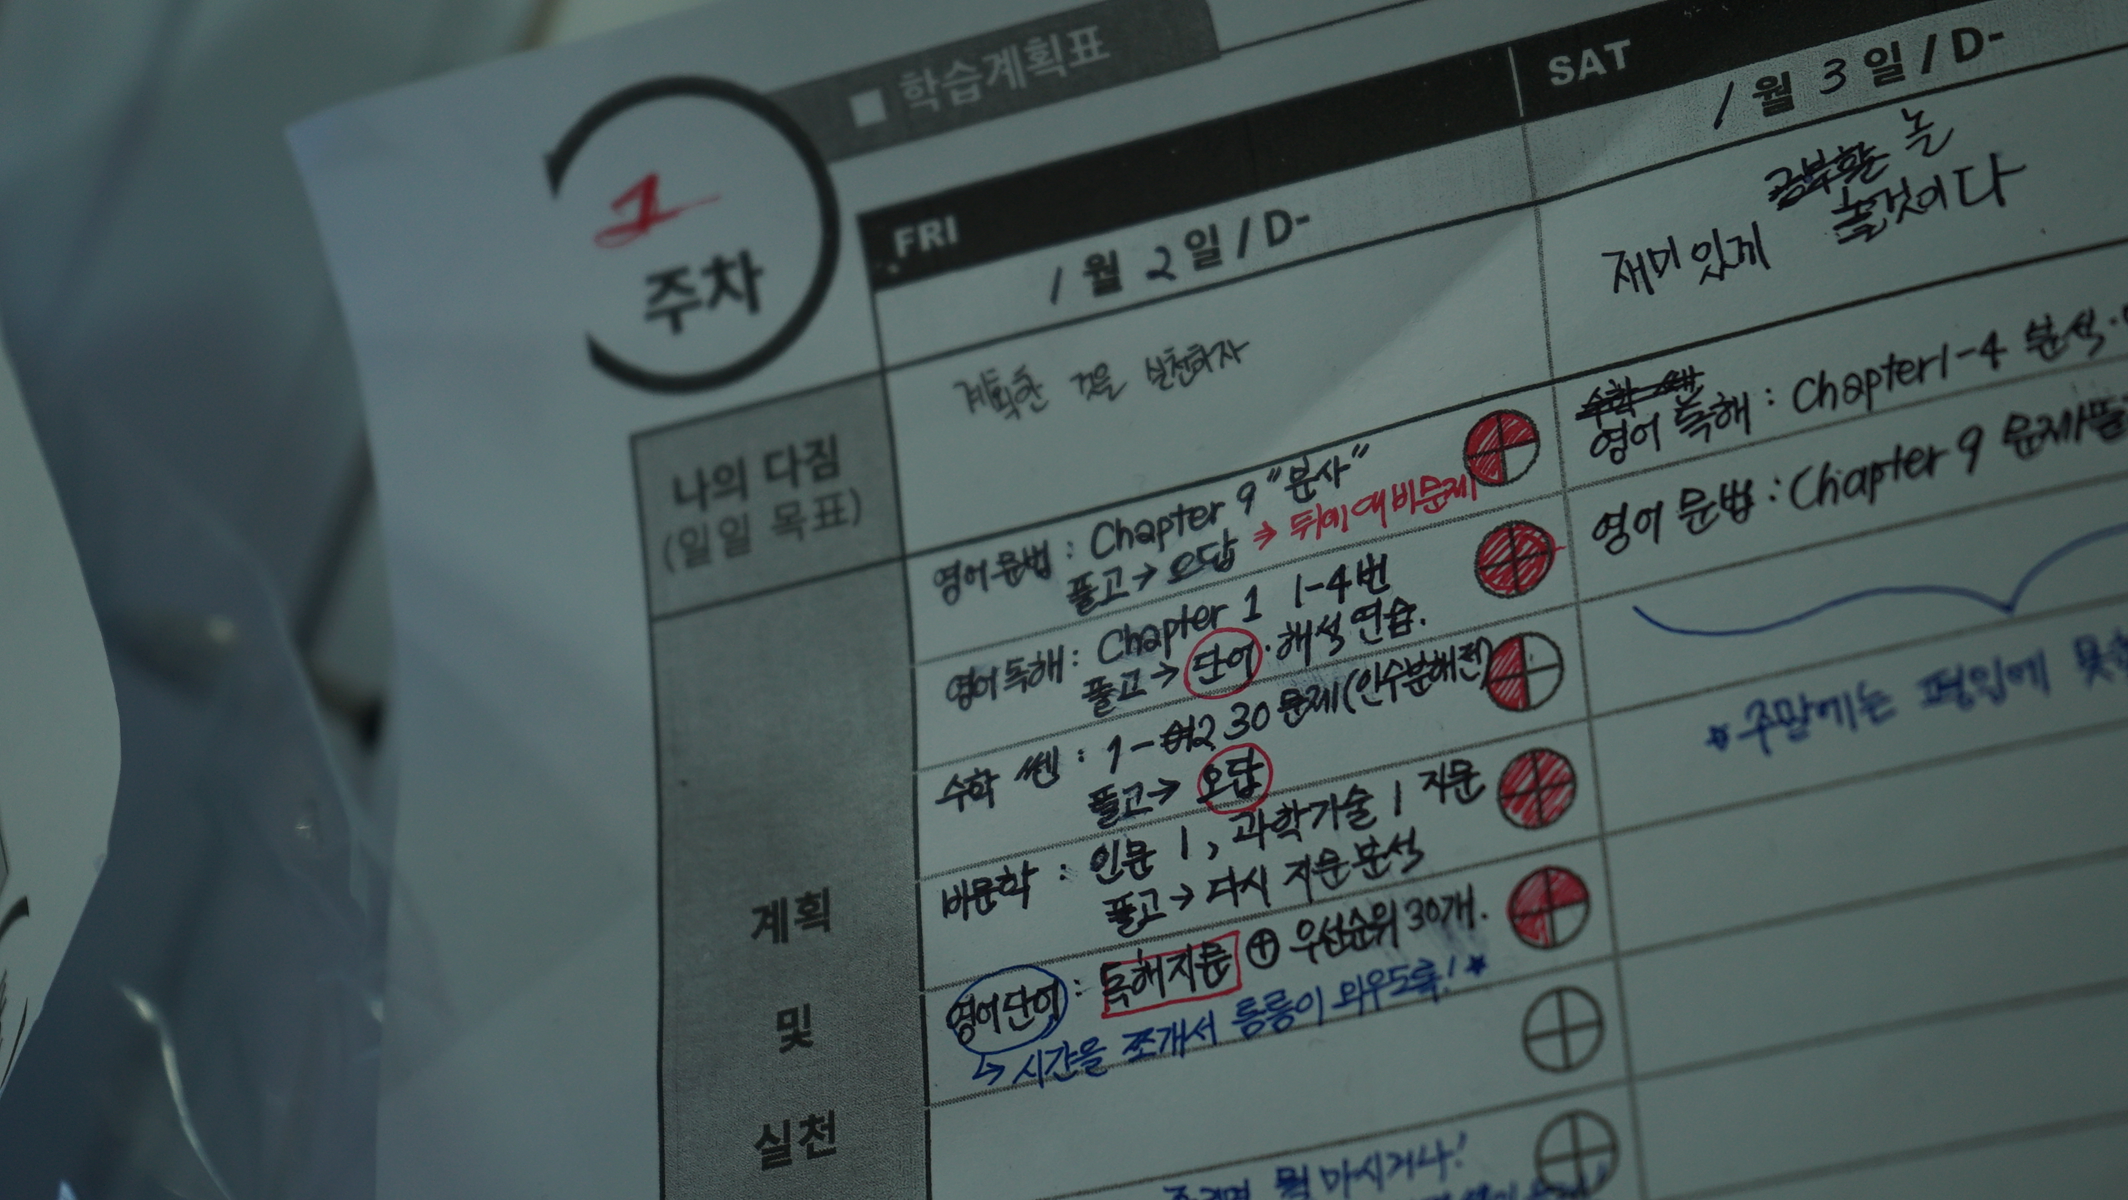 ■ 학습계획표
1
주차
FRI
SAT
1 월 2 일 / D-
1 월 3 일 / D-
나의 다짐
(일일 목표)
계획한 것을 실천하자
놀
재미있게 것이다
영어문법 : Chapter 9 "분사"
풀고 → 오답 ⇒ 뒤에 대비문제
영어독해 : Chapter 1 1-4번
풀고 → 단어 · 해석 연습.
수학 쎈 : 1- 2 30문제(인수분해전)
풀고 → 오답
비문학 : 인문 1, 과학기술 1 지문
풀고 → 다시 지문분석
영어단어 : 독해지문 ⊕ 우선순위 30개.
↳ 시간을 쪼개서 틈틈이 외우도록! ★
뭘 마시거나!
영어 독해 : Chapter 1-4 분석
영어 문법 : Chapter 9 문제
★ 주말에는 평일에
계획
및
실천